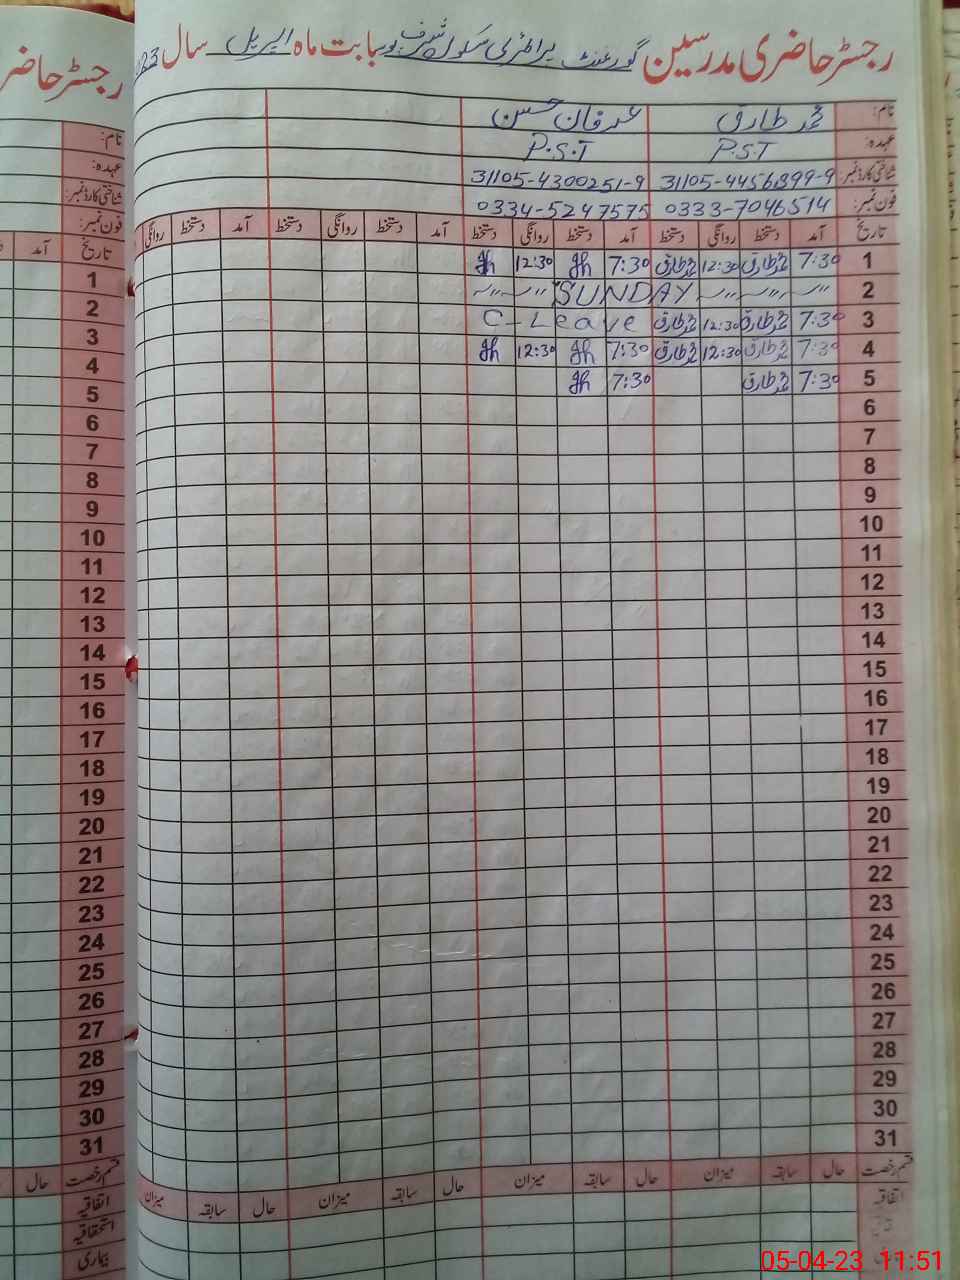 رجسٹر حاضری مدرسین گورنمنٹ پرائمری سکول شریف پور بابت ماہ اپریل سال
رجسٹر حاضر
نام: محمد طارق عرفان حسن
عہدہ: P.S.T P.S.T
شناختی کارڈ نمبر: 31105-4456399-9 31105-4300251-9
فون نمبر: 0333-7046514 0334-5247575
تاریخ آمد دستخط روانگی دستخط آمد دستخط روانگی دستخط آمد دستخط روانگی دستخط آمد دستخط روانگی
1 7:30 محمد طارق 12:30 محمد طارق 7:30 12:30
2 SUNDAY
3 7:30 محمد طارق 12:30 محمد طارق C-Leave
4 7:30 محمد طارق 12:30 محمد طارق 7:30 12:30
5 7:30 محمد طارق 7:30
6
7
8
9
10
11
12
13
14
15
16
17
18
19
20
21
22
23
24
25
26
27
28
29
30
31
قسم رخصت حال سابقہ میزان حال سابقہ میزان حال سابقہ میزان حال سابقہ میزان
اتفاقیہ
نام:
عہدہ:
شناختی کارڈ نمبر:
فون نمبر:
تاریخ آمد
1
2
3
4
5
6
7
8
9
10
11
12
13
14
15
16
17
18
19
20
21
22
23
24
25
26
27
28
29
30
31
قسم رخصت حال
اتفاقیہ
استحقاقیہ
بیماری
05-04-23 11:51